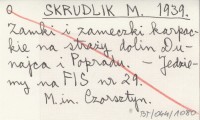 Q SKRUDLIK M. 1939.
Zamki i zameczki karpac-
kie na straży dolin Du-
najca i Popradu. – Jedzie-
my na FIS nr 29.
M.in. Czorsztyn.